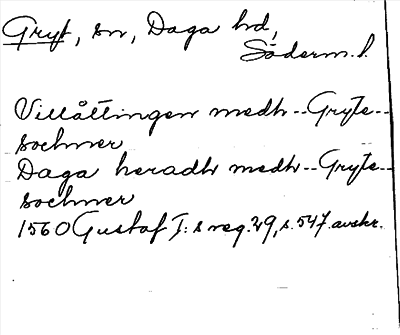 Gryt, sn, Daga hd,
Söderm. l.
Villåttingen medh -- Gryte --
sochner
Daga heradh medh -- Gryte --
sochner
1560 Gustaf I:s reg. 29, s. 547. avskr.